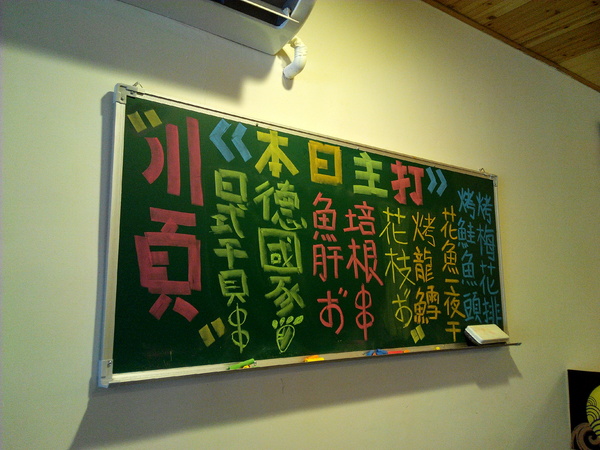 〃川頁〃
《本日主打》
日式干貝串
德國豕
魚肝お
培根串
花枝お
烤龍鱈
花魚一夜干
烤鮭魚頭
烤梅花排